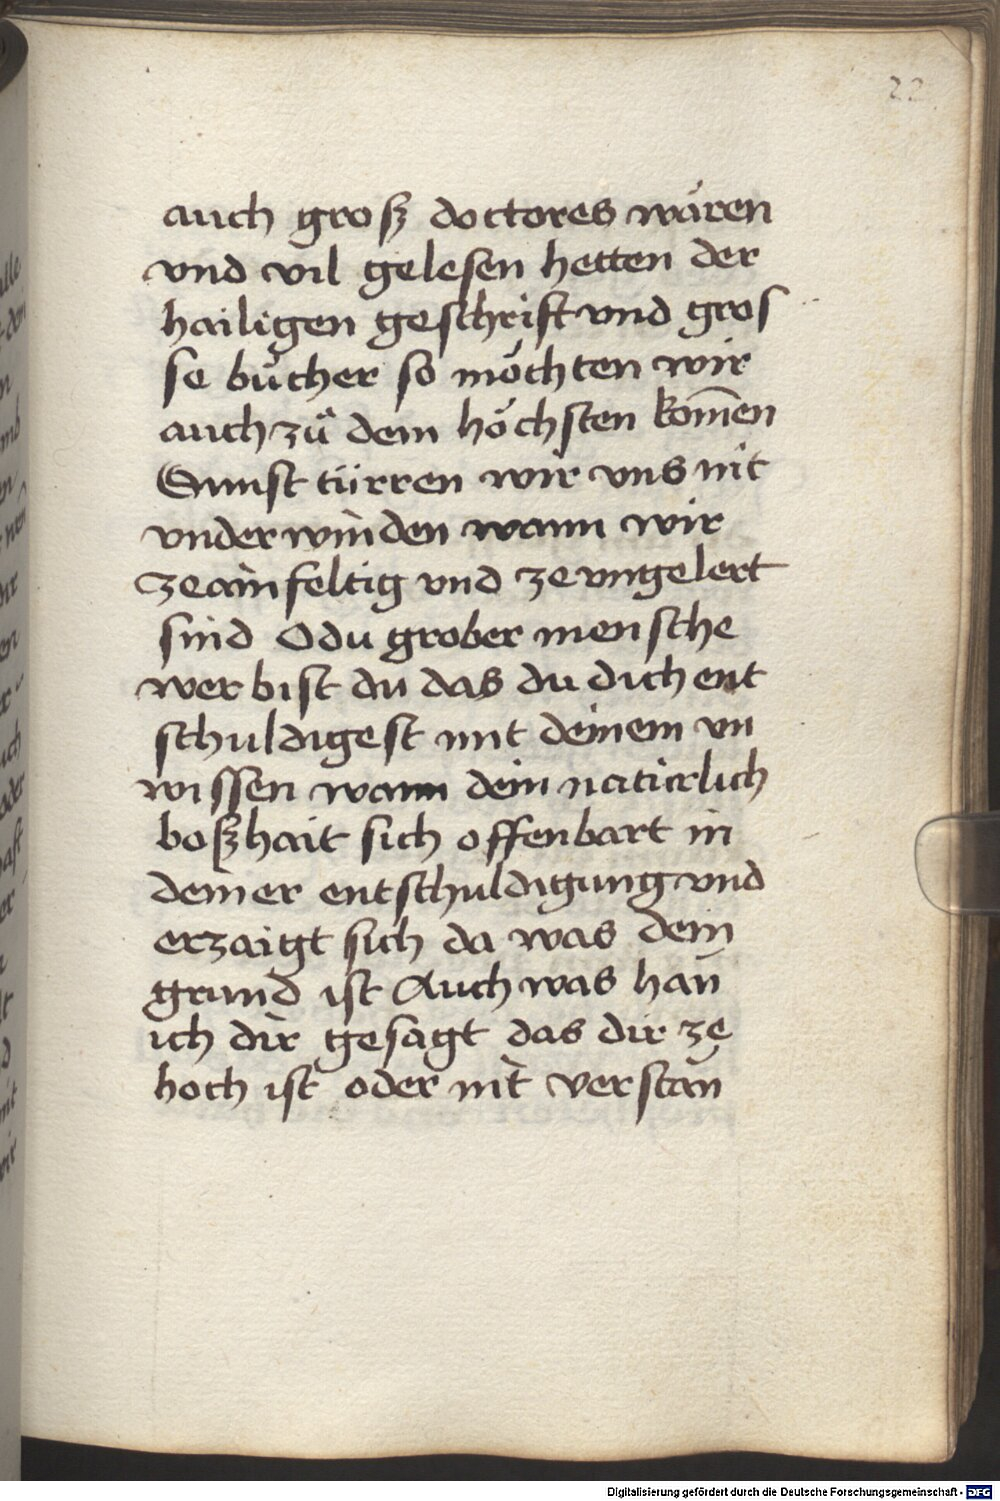 22
auch groß doctores wären
vnd vil gelesen hetten der
hailigen geschrift vnd gros
se bücher so möchten wir
auch zů dem höchsten kom̅en
Sunst türren wir vns nit
vnderwinden wann wir
ze ainfeltig vnd ze vngelert
sind O du grober mensche
wer bist du das du dich ent
schuldigest mit deinem vn
wissen wann dein natürlich
boßhait sich offenbart in
deiner entschuldigung vnd
erzaigt sich da was dein
grund ist Auch was han
ich dir gesagt das dir ze
hoch ist oder nit verstan̄
Digitalisierung gefördert durch die Deutsche Forschungsgemeinschaft - DFG